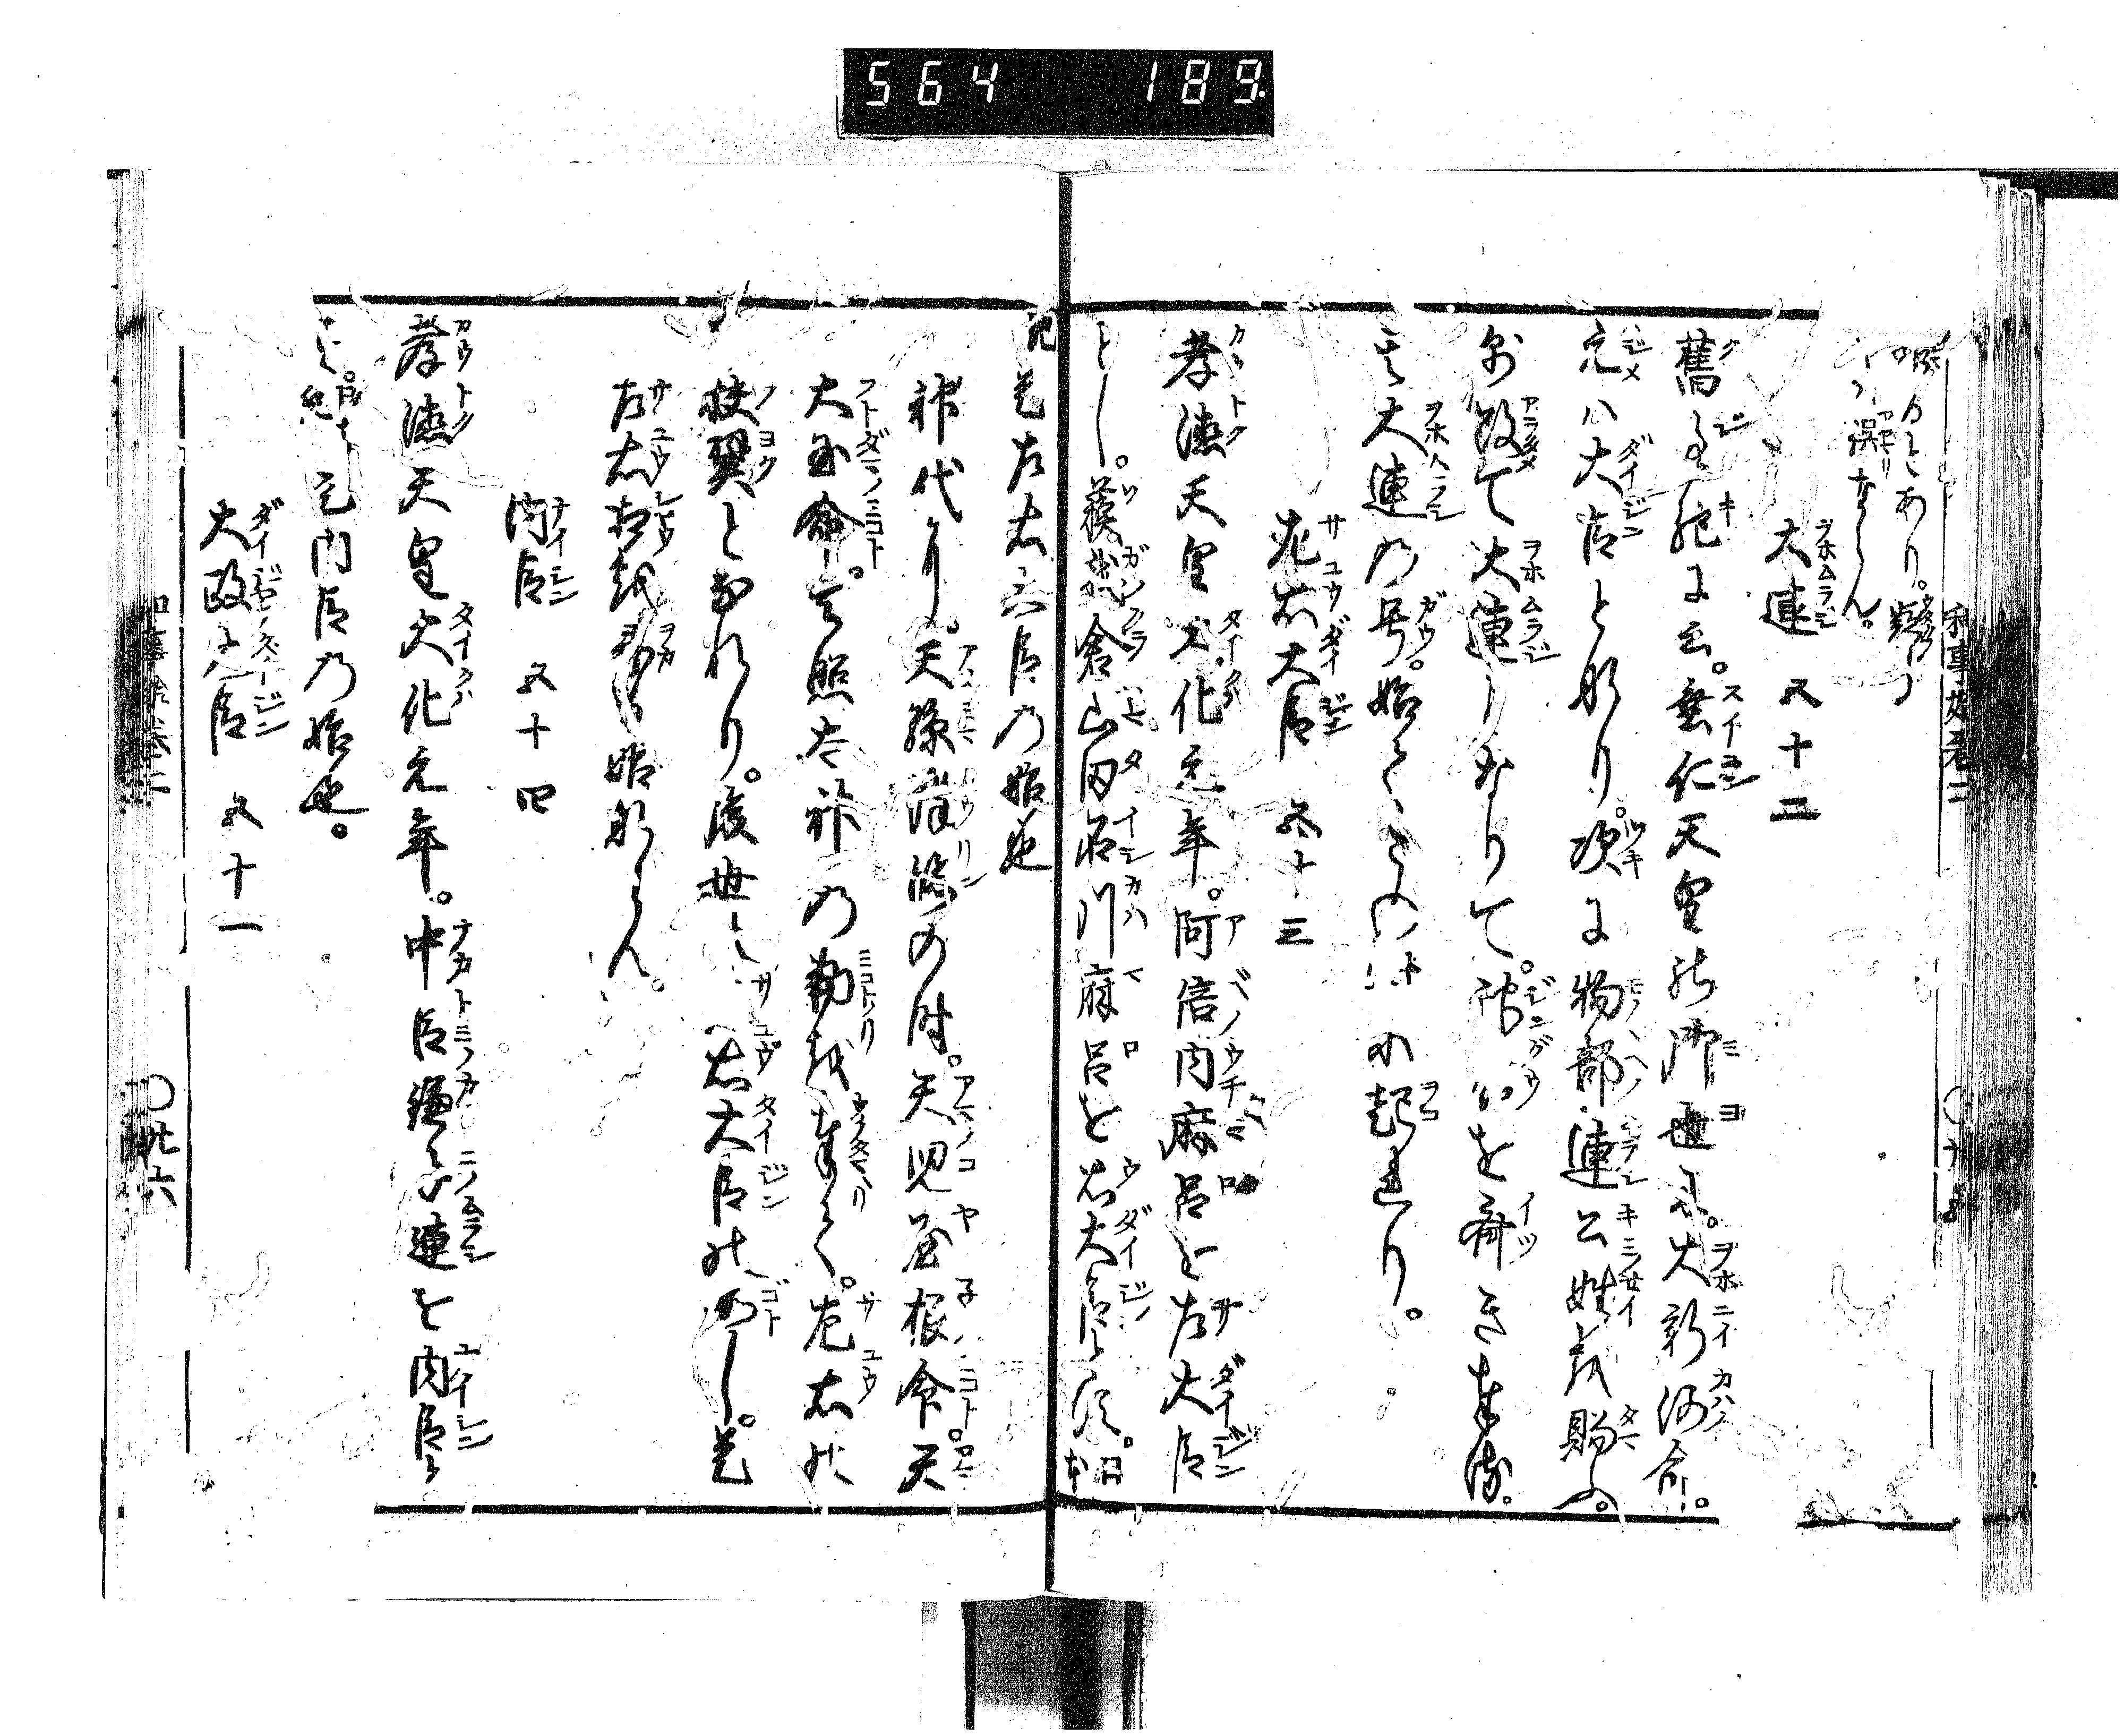 564 189
のみあり。
誤ならん。
大連 五十二
舊事紀に云。垂仁天皇の御世に。大新河命。
元ハ大臣となり。次に物部連公姓を賜ふ。
改て大連となりて。神宮を斎き奉る。
大連の号。始てこの時に起れり。
左右大臣 五十三
孝徳天皇大化元年。阿倍内麻呂を左大臣
とし。蘇我倉山田石川麻呂を右大臣とす。日本
紀是左右大臣の始也
神代より。天孫降臨の時。天児屋根命。天
太玉命。天照太神の勅を奉て。左右の
扶翼となれり。後世の左右大臣のごとし。是
左右相の始ならん。
内臣 五十四
孝徳天皇大化元年。中臣鎌子連を内臣と
す。日本紀是内臣の始也。
大政大臣 五十一
和事始巻二
廿六